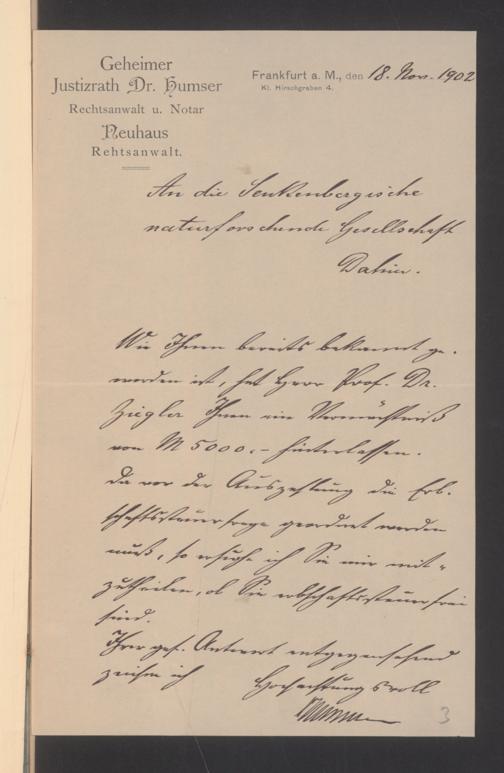 Geheimer
Justizrath Dr. Humser
Rechtsanwalt u. Notar
Neuhaus
Rehtsanwalt.
Frankfurt a. M., den 18. Nov. 1902
Kl. Hirschgraben 4.
An die Senkenbergische
naturforschende Gesellschaft
Dahier.
Wie Ihnen bereits bekannt ge-
worden ist, hat Herr Prof. Dr.
Ziegler Ihnen ein Vermächtniß
von M 5000.- hinterlassen.
Da vor der Auszahlung die Erb-
schaftssteuerfrage geordnet werden
muß, so ersuche ich Sie mir mit-
zutheilen, ob Sie erbschaftssteuerfrei
sind.
Ihrer gef. Antwort entgegensehend
zeichne ich Hochachtungsvoll
3